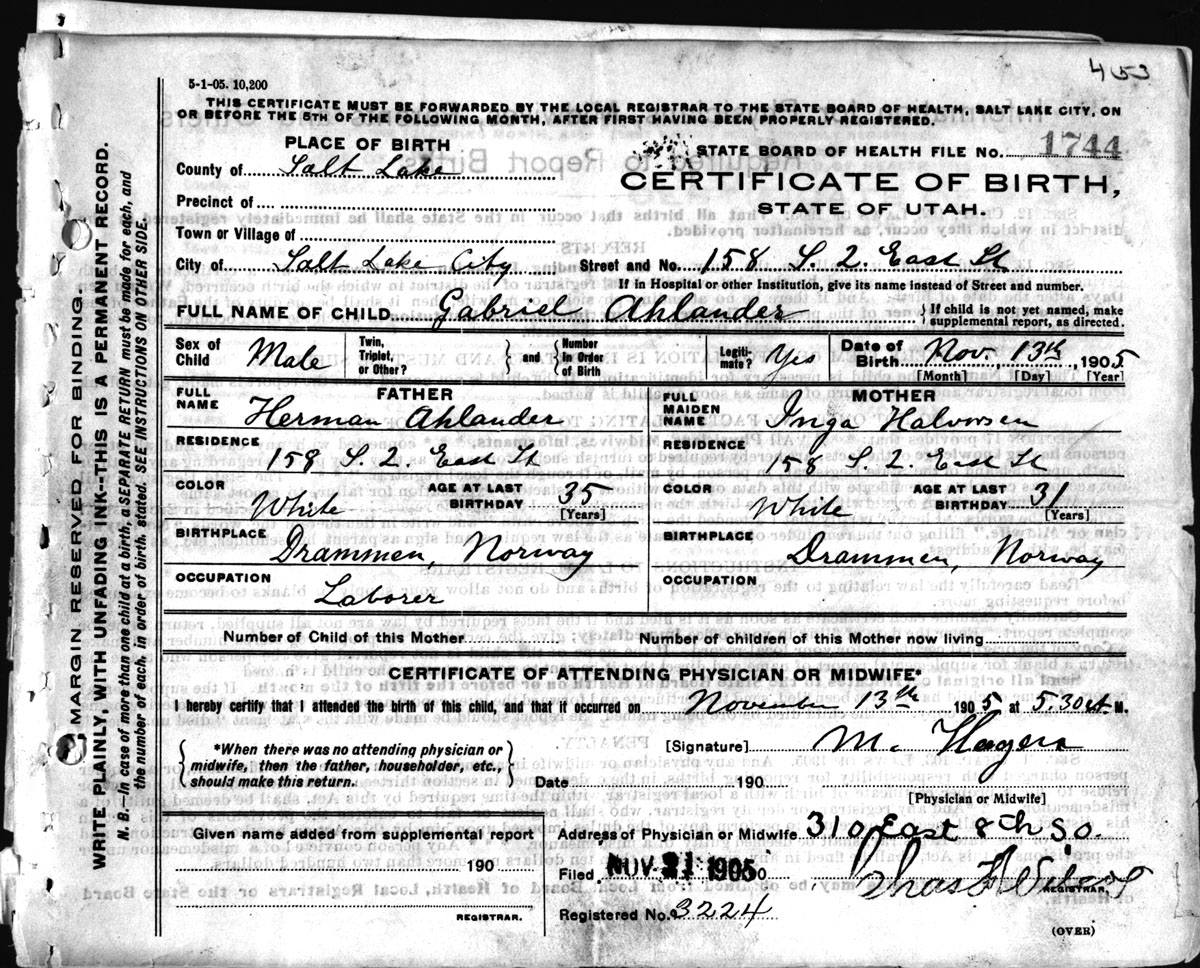 453
5-1-05. 10,200
THIS CERTIFICATE MUST BE FORWARDED BY THE LOCAL REGISTRAR TO THE STATE BOARD OF HEALTH, SALT LAKE CITY, ON
OR BEFORE THE 5TH OF THE FOLLOWING MONTH, AFTER FIRST HAVING BEEN PROPERLY REGISTERED.
PLACE OF BIRTH
STATE BOARD OF HEALTH FILE NO. 1744
County of Salt Lake
CERTIFICATE OF BIRTH,
Precinct of
STATE OF UTAH.
Town or Village of
City of Salt Lake City Street and No. 158 S. 2. East St
If in Hospital or other Institution, give its name instead of Street and number.
FULL NAME OF CHILD Gabriel Ahlander { If child is not yet named, make
supplemental report, as directed.
Sex of Child Male Twin, Triplet, or Other? } and { Number in Order of Birth Legiti-mate? Yes Date of Birth Nov. 13th, 1905
[Month] [Day] [Year]
FATHER
FULL NAME Herman Ahlander
RESIDENCE
158 S. 2. East St
COLOR White AGE AT LAST BIRTHDAY 35
[Years]
BIRTHPLACE
Drammen, Norway
OCCUPATION
Laborer
MOTHER
FULL MAIDEN NAME Inga Halvorsen
RESIDENCE
158 S. 2. East St
COLOR White AGE AT LAST BIRTHDAY 31
[Years]
BIRTHPLACE
Drammen, Norway
OCCUPATION
Number of Child of this Mother Number of children of this Mother now living
CERTIFICATE OF ATTENDING PHYSICIAN OR MIDWIFE*
I hereby certify that I attended the birth of this child, and that it occurred on November 13th 1905 at 5.30 A. M.
*When there was no attending physician or
midwife, then the father, householder, etc.,
should make this return.
[Signature] M.
Date 190
[Physician or Midwife]
Given name added from supplemental report
190
REGISTRAR.
Address of Physician or Midwife 310 East 8th So.
Filed NOV 21 1905 190 Chas
REGISTRAR.
Registered No. 3224
(OVER)
MARGIN RESERVED FOR BINDING.
WRITE PLAINLY, WITH UNFADING INK--THIS IS A PERMANENT RECORD.
N. B.—In case of more than one child at a birth, a SEPARATE RETURN must be made for each, and
the number of each, in order of birth, stated. SEE INSTRUCTIONS ON OTHER SIDE.